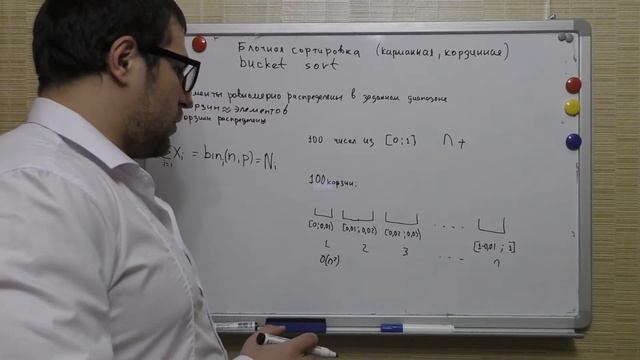 Блочная сортировка (карманная, корзинная)
bucket sort
элементы равномерно распределены в заданном диапазоне
корзин ≈ элементов
корзин распределены
100 чисел из [0;1] n +
Xᵢ = bin(n,p) = Nᵢ
100 корзин:
[0;0,01) [0,01;0,02) [0,02;0,03) .... [1-0,01;1]
1 2 3 ... n
O(n²)